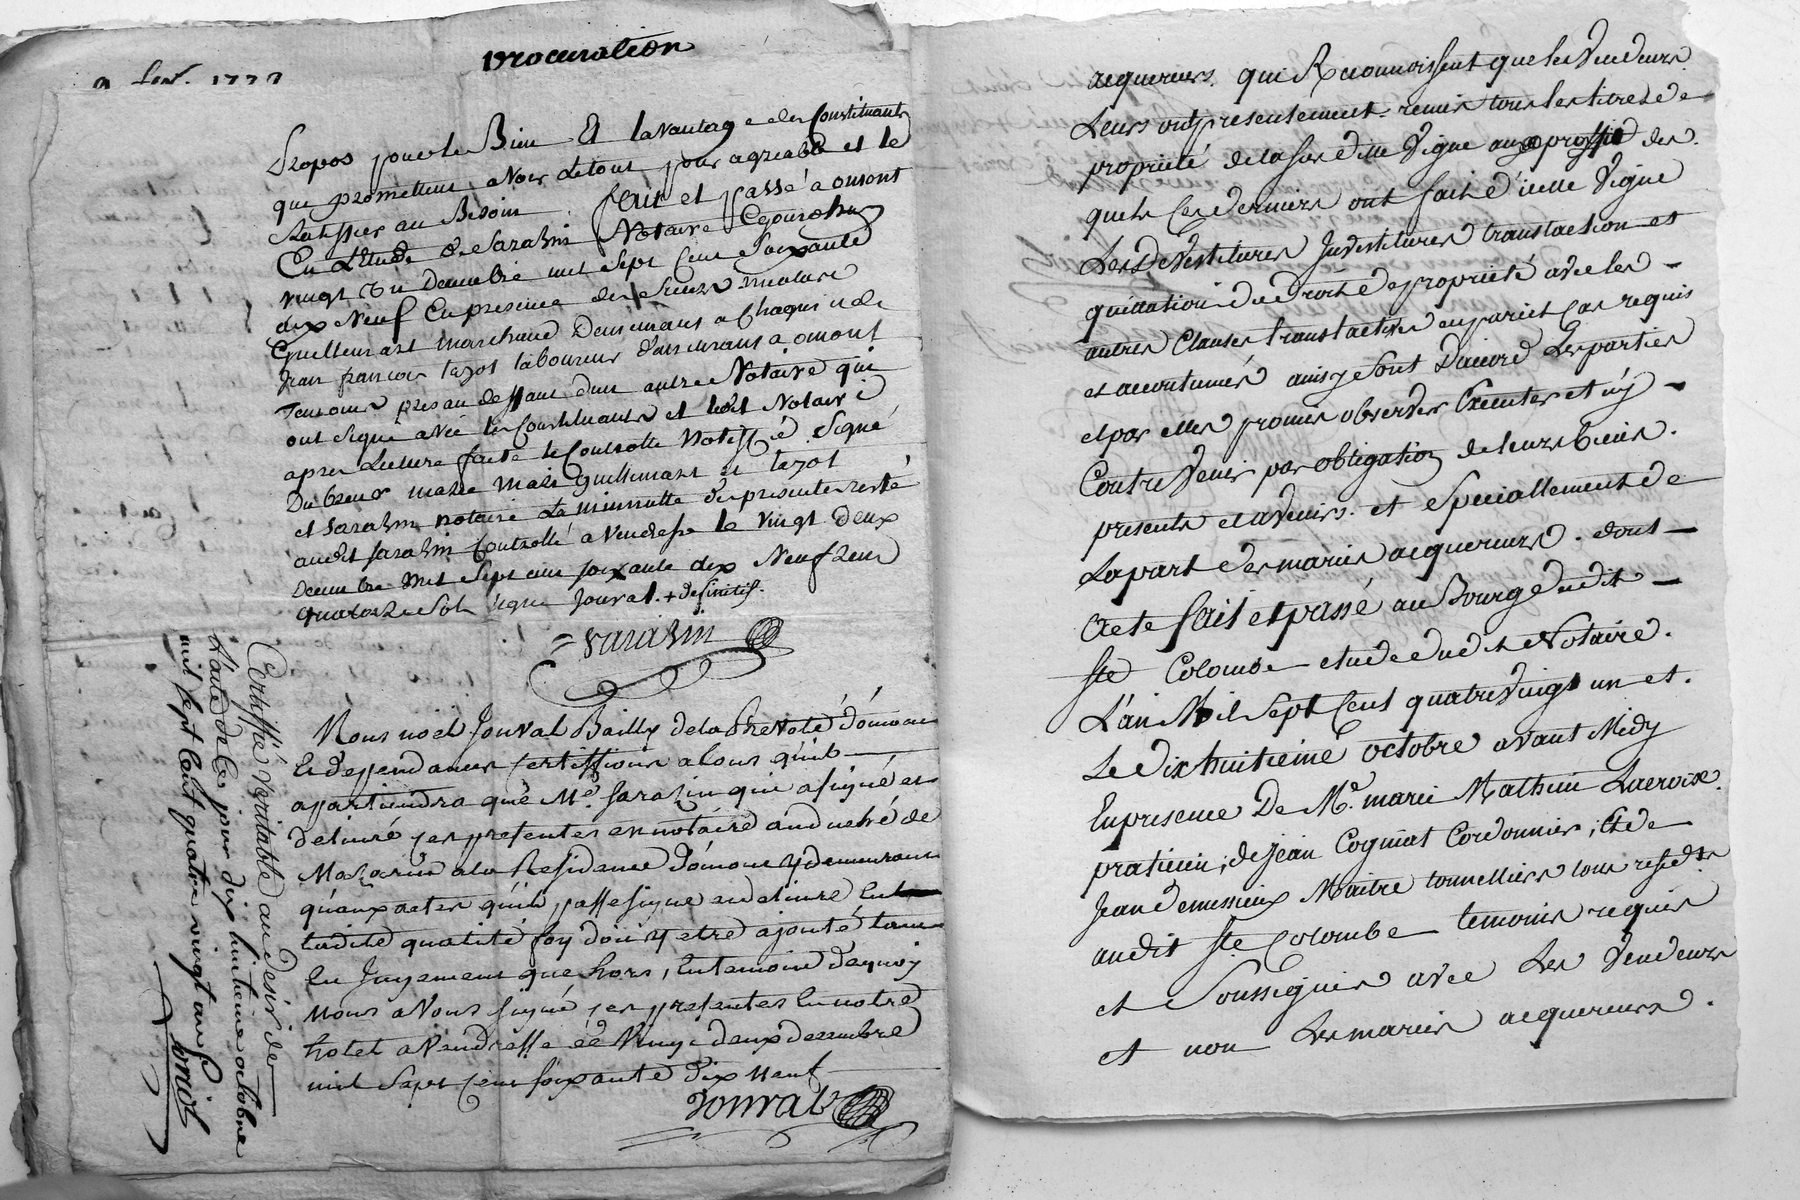 procuration
propos pour le Bien Et lavantage des Constituants
que promettent avoir Letout pour agreable et le
Ratiffier au Besoin fait et passé a omont
En L'Etude de Sarazin Notaire Cejourdhuy
vingt un Decembre mil Sept Cent Soixante
dix Neuf En presence des Sieurs
Guillemart marchand Demeurant a Chagni et de
Jean francois tazot laboureur demeurant a omont
Temoins pris au deffaut dun autre Notaire qui
ont signé avec les Constituants et ledit Notaire
apres Lecture faite le Controlle Notiffié Signé
marie Guillemart et tazot
et Sarazin notaire La minutte des presentes resté
audit Sarazin Controllé a Vendresse le vingt deux
Decembre mil Sept cent soixante dix Neuf Reçu
quatorze sols signé Jouval. + definitif.
Sarazin
Nous noel Jouval Bailly dela Prevoté d'omont
Et deppendances certiffions atous quil
appartiendra que Me. Sarazin qui asigné et
delivré ces presentes est notaire au duché de
Mazarin ala Residence d'omont y demeurant
qu'aux actes qu'il passe signe et delivre En
ladite qualité foy doit y etre ajouté tant
En Jugement que hors, En temoin dequoy
Nous avons signé ces presentes En notre
hotel a Vendresse ce Vingt deux decembre
mil Sept Cent soixante Dix Neuf
Jouval
Certiffié Veritable au Desir de
L'acte de Ce jour dix huitieme octobre
mil sept Cent quatre vingt un
acquereurs. qui Reconnoissent que les Vendeurs
Leurs ont presentement remis tous les titres de
propriété de la susditte Vigne au proffit des
quels Ces derniers ont fait d'icelle Vigne
Les Devestitures Investitures translaction et
quittation du Droit de propriété avec les
autres Clauses translatives en pareil cas requis
et accoutumés ainsy Sont Daccord Les parties
et par elles promis observer Executer et n'y
Contrevenir par obligation de leurs biens
presents et avenirs et speciallement de
La part des mariés acquereurs. dont
Acte fait et passé au Bourg dudit
Ste Colombe etude dudit Notaire.
L'an Mil Sept Cent quatre Vingt un et
Le Dix huitieme octobre avant Midy
En presence De Me. marie Mathieu Lacroix
praticien, de Jean Cogniat Cordonnier, Et de
Jean Demessieux Maitre tonnellier tous resid.ts
audit Ste Colombe temoins requis
et Soussignés avec Les Vendeurs
et non Les mariés acquereurs.